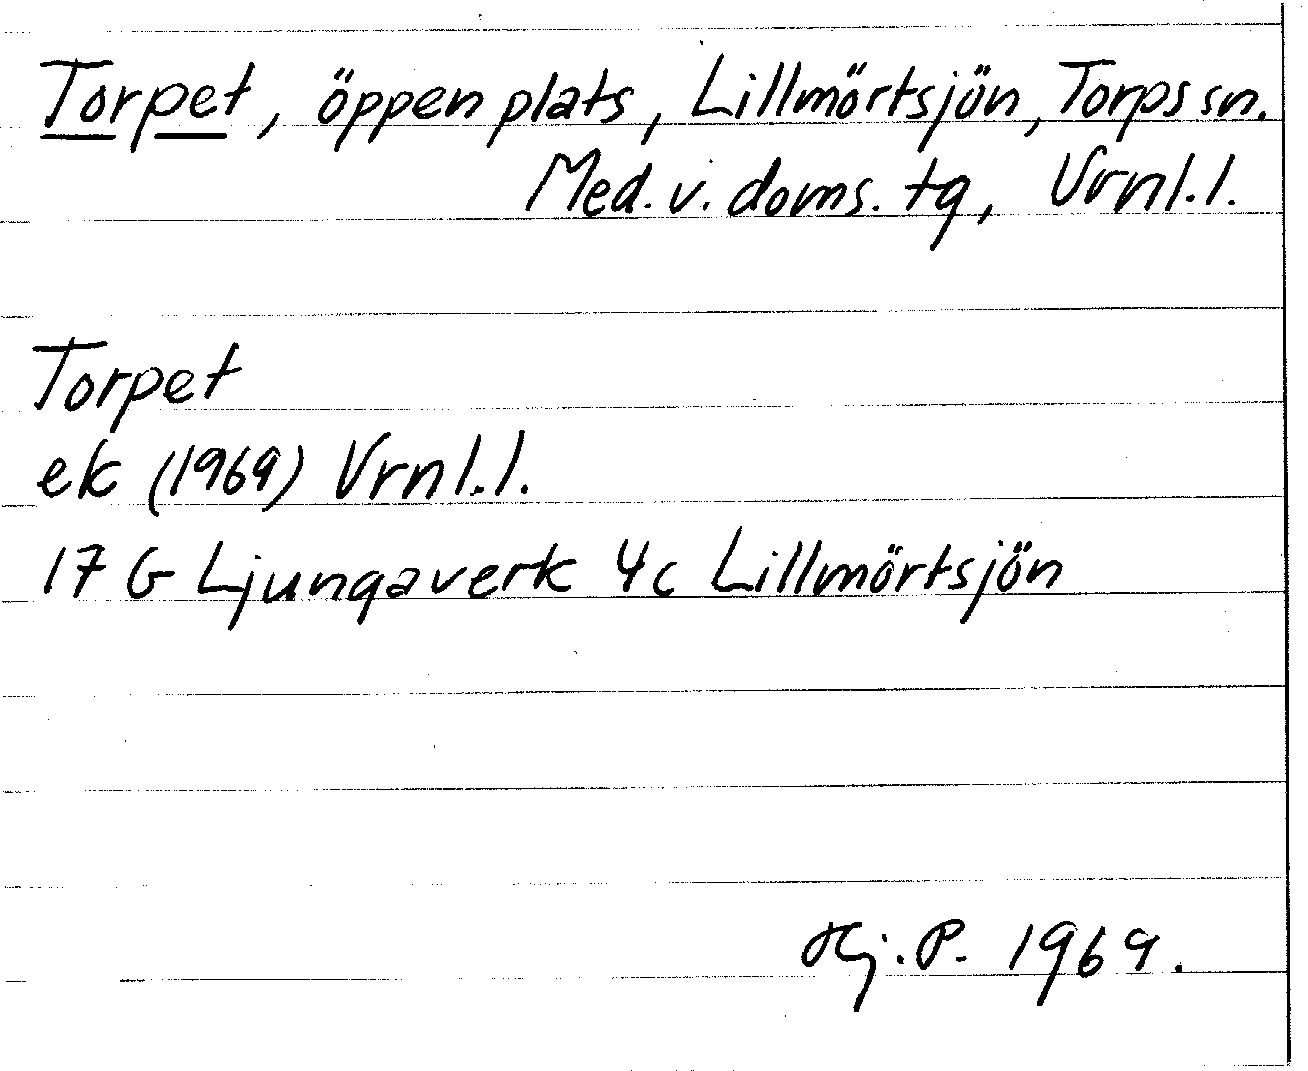 Torpet, öppen plats, Lillmörtsjön, Torps sn.
Med. v. doms. tg, Vrnl.l.
Torpet
ek (1969) Vrnl.l.
17 G Ljungaverk 4c Lillmörtsjön
Hj. P. 1969.